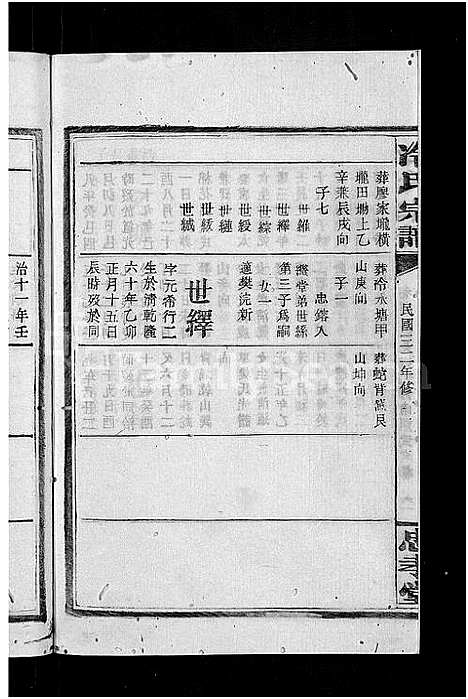 冷氏宗譜
民國三二年修
忠孝堂
葬廖家壠橫
壠田塝上乙
辛兼辰戌向
子七
世維
世繹
世綜
世綬
世縺
世絨
世緎
葬冷水塘甲
山庚向
子一
忠鎔入
繼堂弟世絲
第三子爲嗣
女一
適樊浣新
世繹
字元希行二
生於清乾隆
六十年乙卯
正月十五日
辰時歿於同
葬蛇背窩艮
山坤向
治十一年壬